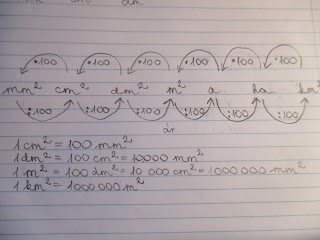 cm dm
•100 •100 •100 •100 •100 •100
mm² cm² dm² m² a ha km²
:100 :100 :100 :100 :100 :100
ár
1 cm² = 100 mm²
1 dm² = 100 cm² = 10000 mm²
1 m² = 100 dm² = 10 000 cm² = 1000 000 mm²
1 km² = 1000 000 m²